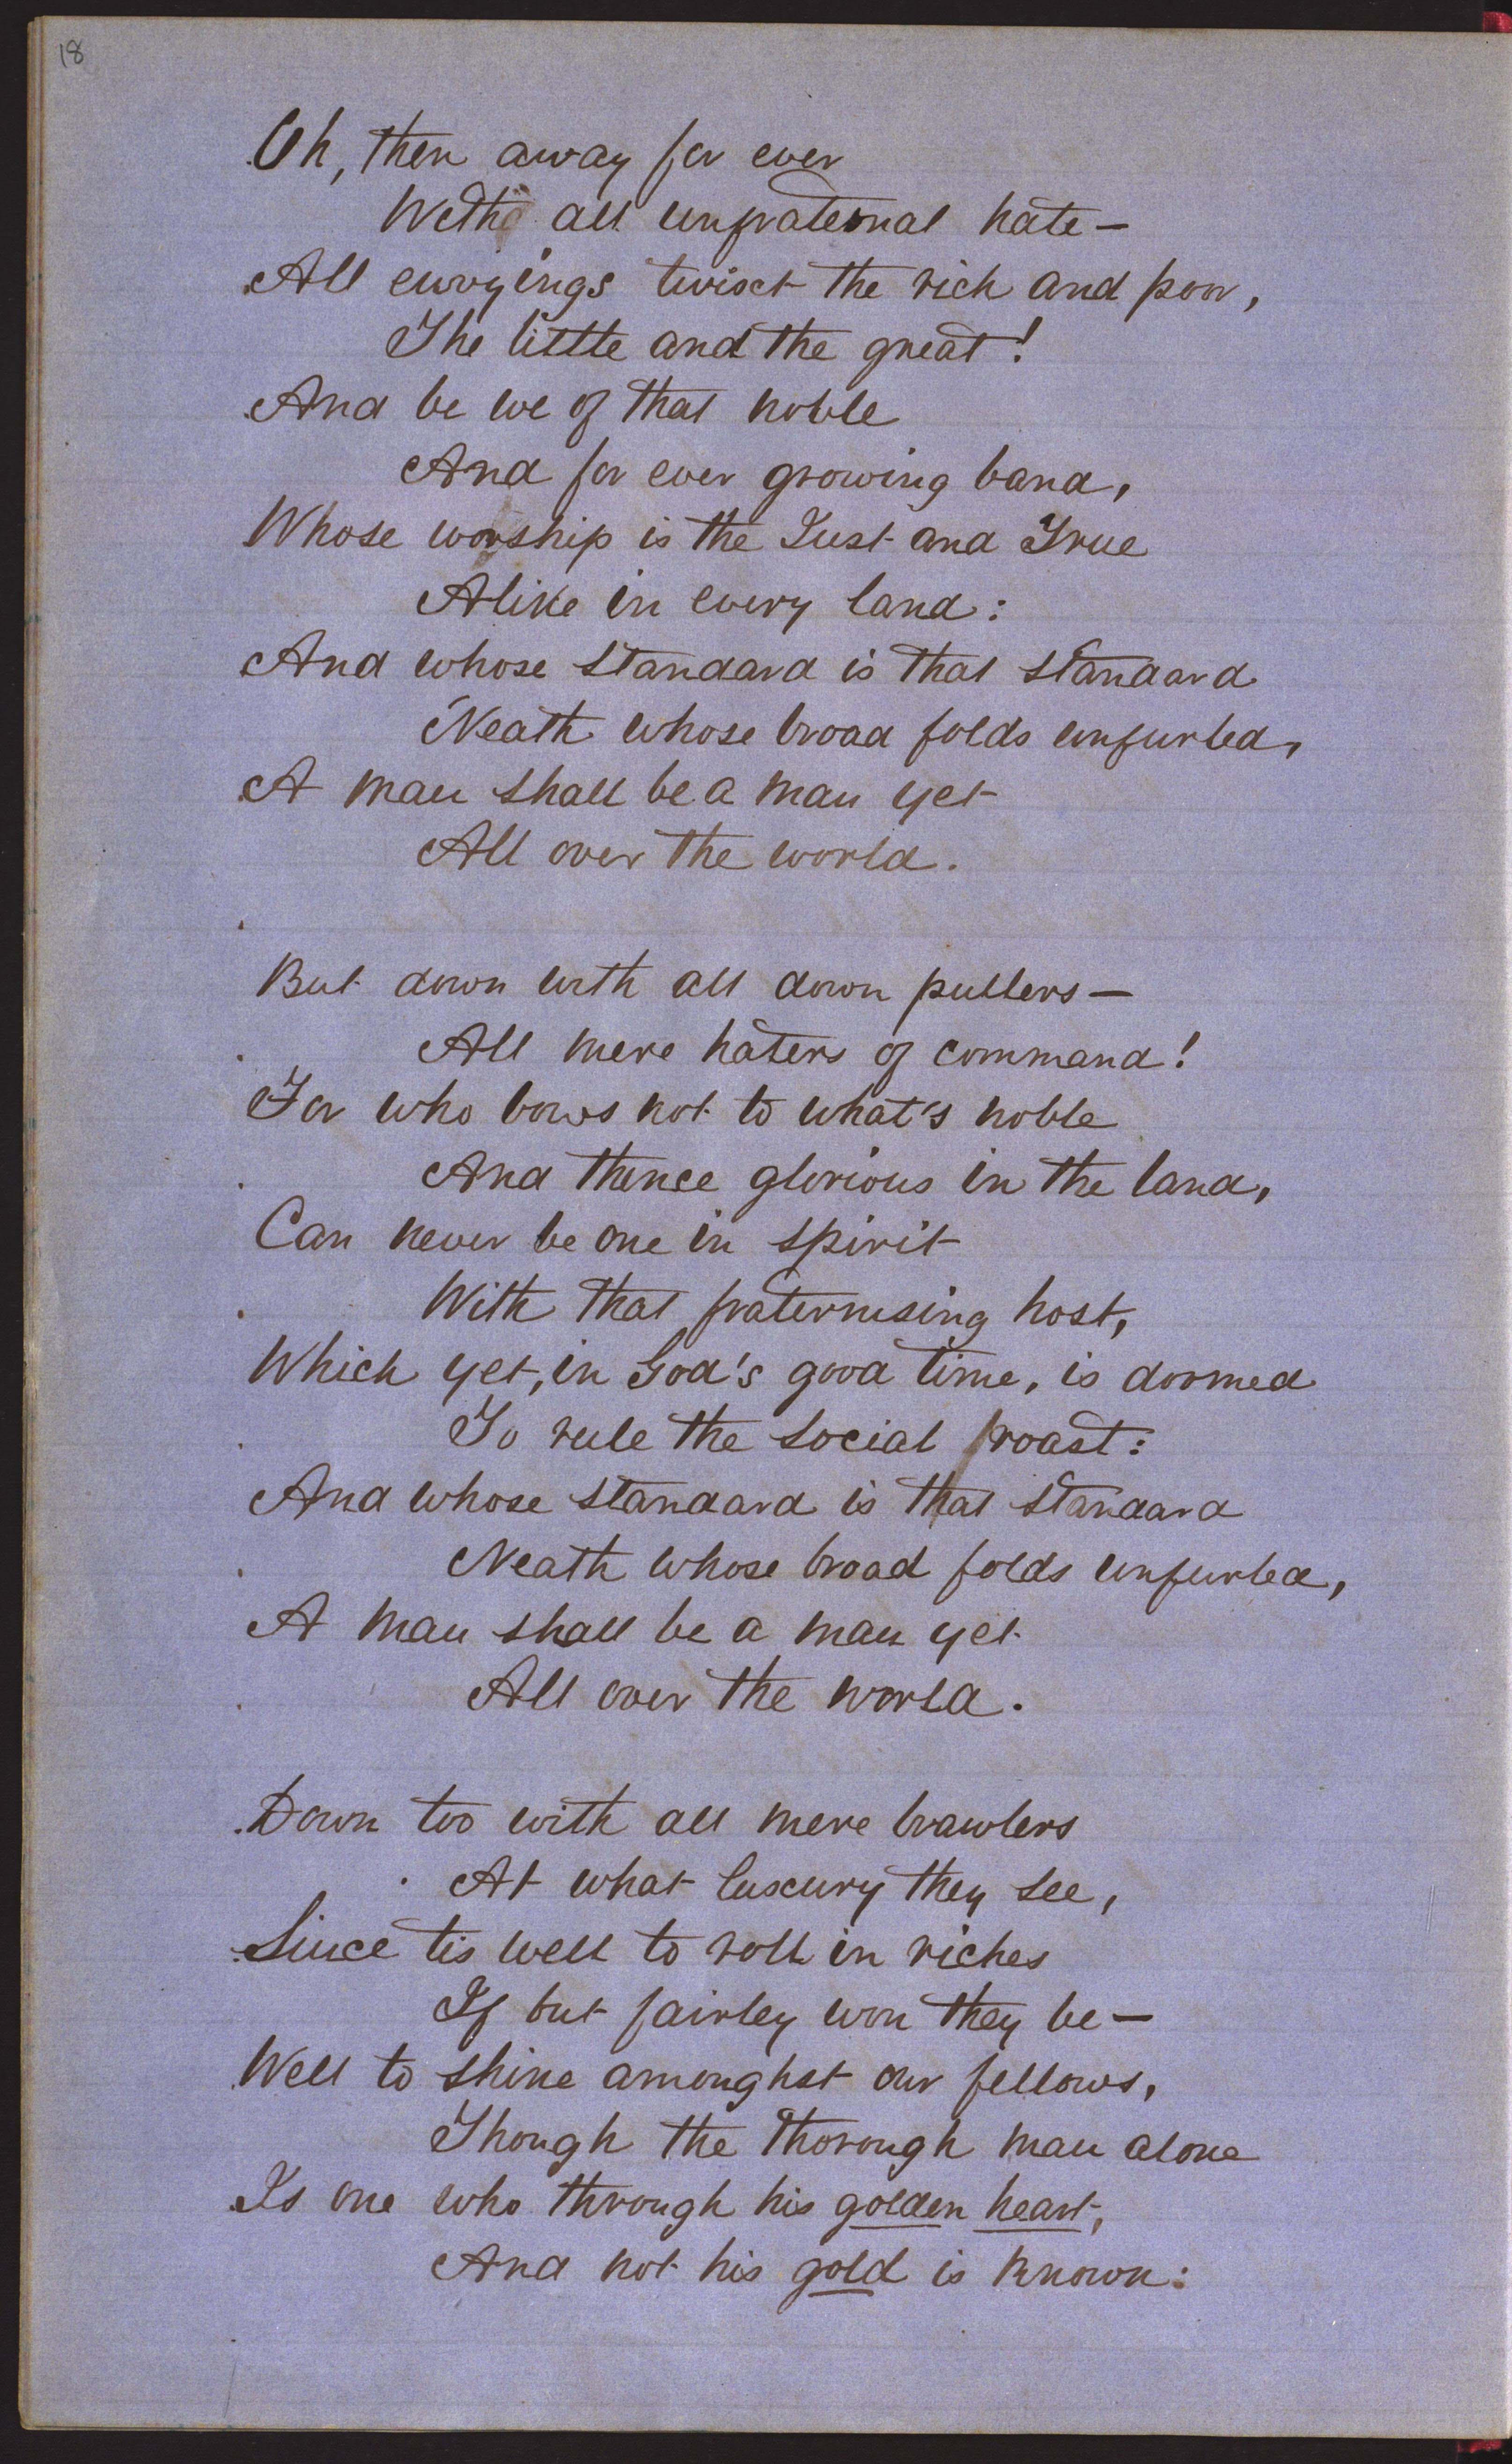 18
Oh, then away for ever
With all unfraternal hate—
All envyings twixt the rich and poor,
The little and the great!
And be we of that noble
And for ever growing band,
Whose worship is the Just and True
Alike in every land:
And whose standard is that standard
Neath whose broad folds unfurled,
A man shall be a man yet
All over the world.
But down with all down pullers—
All mere haters of command!
For who bows not to what's noble
And thence glorious in the land,
Can never be one in spirit
With that fraternising host,
Which yet, in God's good time, is doomed
To rule the social roast:
And whose standard is that standard
Neath whose broad folds unfurled,
A man shall be a man yet
All over the world.
Down too with all mere brawlers
At what luxury they see,
Since tis well to roll in riches
If but fairley won they be—
Well to shine amonghst our fellows,
Though the thorough man alone
Is one who through his golden heart,
And not his gold is known: